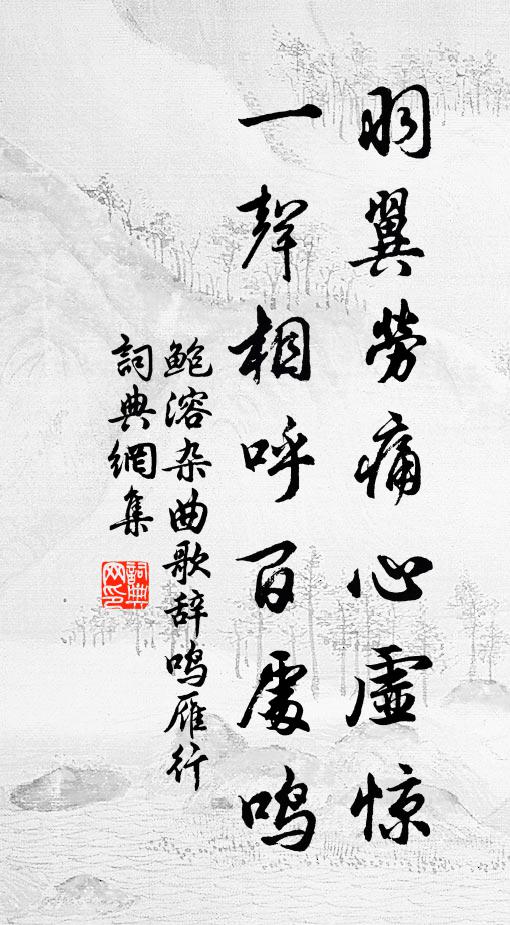 羽翼劳痛心虚惊
一聲相呼百處鸣
鲍溶杂曲歌辞鸣雁行
詞典網集
詞典网印